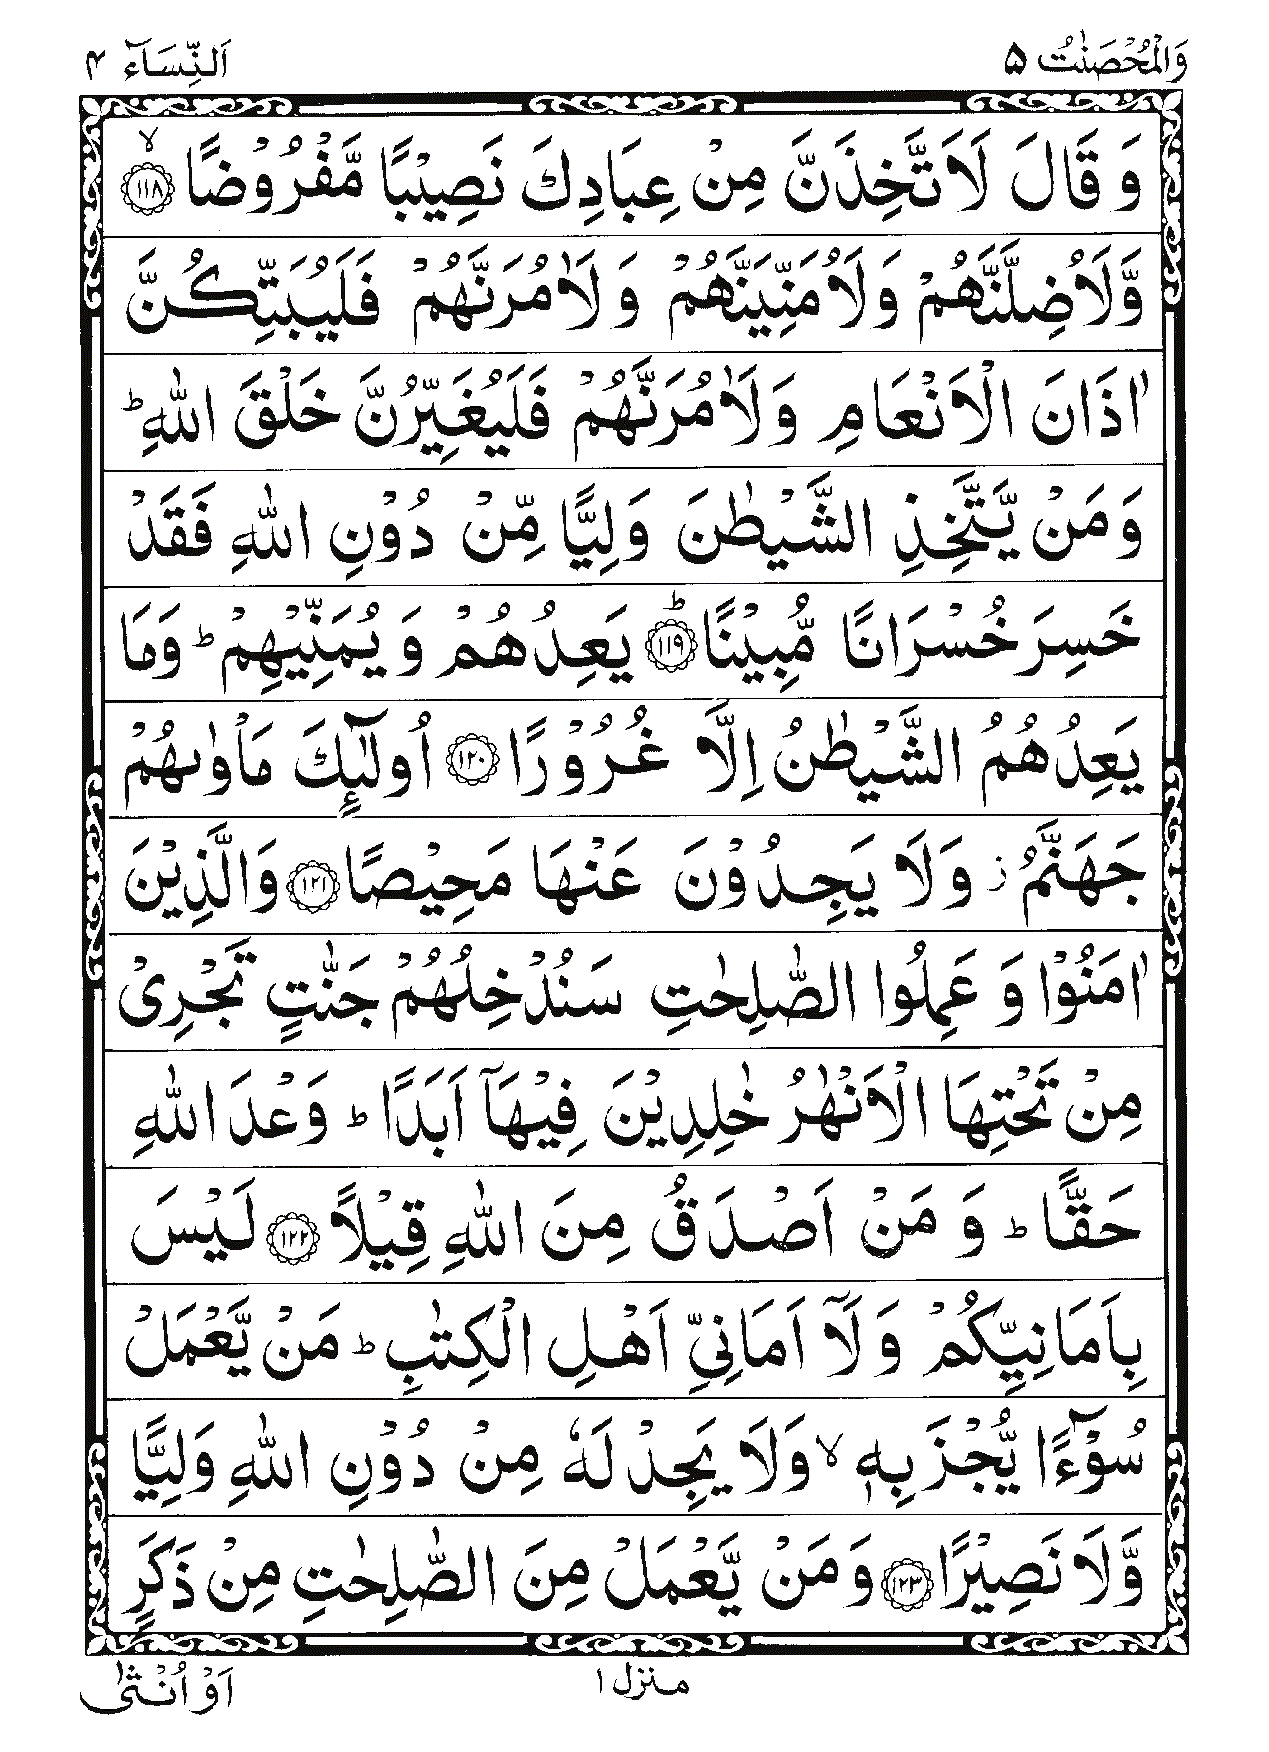 وَالْمُحْصَنٰتُ ۵ اَلنِّسَآء ۴
وَ قَالَ لَاَتَّخِذَنَّ مِنْ عِبَادِكَ نَصِيْبًا مَّفْرُوْضًا ۙ﴿۱۱۸﴾
وَّلَاُضِلَّنَّهُمْ وَلَاُمَنِّيَنَّهُمْ وَ لَاٰمُرَنَّهُمْ فَلَيُبَتِّكُنَّ
اٰذَانَ الْاَنْعَامِ وَلَاٰمُرَنَّهُمْ فَلَيُغَيِّرُنَّ خَلْقَ اللّٰهِ ؕ
وَمَنْ يَّتَّخِذِ الشَّيْطٰنَ وَلِيًّا مِّنْ دُوْنِ اللّٰهِ فَقَدْ
خَسِرَ خُسْرَانًا مُّبِيْنًا ؕ﴿۱۱۹﴾ يَعِدُهُمْ وَ يُمَنِّيْهِمْ ؕ وَمَا
يَعِدُهُمُ الشَّيْطٰنُ اِلَّا غُرُوْرًا ﴿۱۲۰﴾ اُولٰٓئِكَ مَاْوٰىهُمْ
جَهَنَّمُ ز وَلَا يَجِدُوْنَ عَنْهَا مَحِيْصًا ﴿۱۲۱﴾ وَالَّذِيْنَ
اٰمَنُوْا وَ عَمِلُوا الصّٰلِحٰتِ سَنُدْخِلُهُمْ جَنّٰتٍ تَجْرِيْ
مِنْ تَحْتِهَا الْاَنْهٰرُ خٰلِدِيْنَ فِيْهَآ اَبَدًا ؕ وَعْدَ اللّٰهِ
حَقًّا ؕ وَ مَنْ اَصْدَقُ مِنَ اللّٰهِ قِيْلًا ﴿۱۲۲﴾ لَيْسَ
بِاَمَانِيِّكُمْ وَ لَآ اَمَانِيِّ اَهْلِ الْكِتٰبِ ؕ مَنْ يَّعْمَلْ
سُوْٓءًا يُّجْزَ بِهٖ ۙ وَلَا يَجِدْ لَهٗ مِنْ دُوْنِ اللّٰهِ وَلِيًّا
وَّلَا نَصِيْرًا ﴿۱۲۳﴾ وَمَنْ يَّعْمَلْ مِنَ الصّٰلِحٰتِ مِنْ ذَكَرٍ
منزل ۱ اَوْ اُنْثٰى